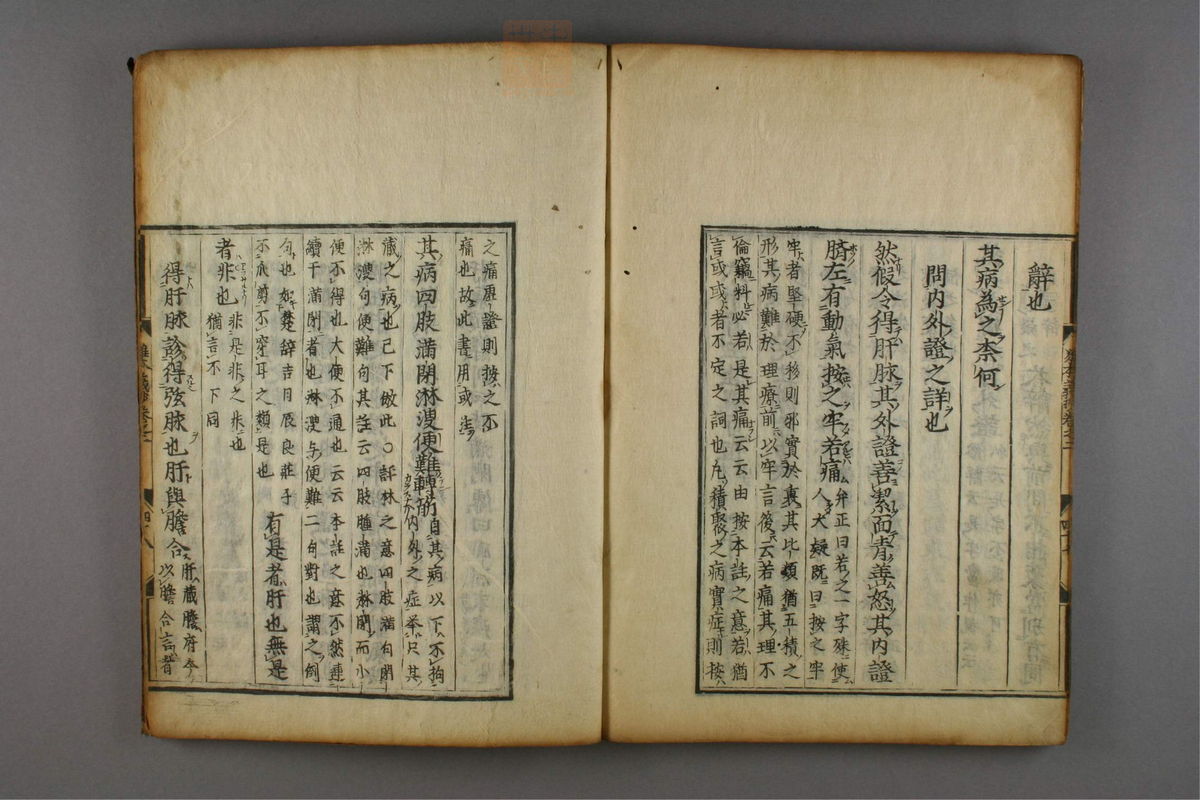 辭也
其病為之柰何
問内外證之詳也
然假令得肝脉其外證善潔面青善怒其内證
臍左有動氣按之牢若痛
弁正曰若之一字殊使
人大疑既曰按之牢
牢者堅硬不移則邪實於裏其比類猶五積之
形其病難於理療前以牢言後云若痛其理不
倫竊料必若是其痛云云由按本註之意若猶
言或或者不定之詞也凢積聚之病實症則按
之痛虛證則按之不
痛也故此書用或字
其病四肢滿閉淋溲便難轉筋
自其病以下不拘
内外之症举只其
蔵之病也已下倣此○許林之意四肢滿句閉
淋溲句便難句其註云四肢腫滿也淋閉而小
便不得也大便不通也云云本註之意不然連
續于滿閉者也淋溲与便難二句對也謂之倒
句也如楚辭吉日辰良莊子
不爪剪不穿耳之類是也
有是者肝也無是
者非也
非是非之非也
猶言不下同
得肝脉診得弦脉也肝與膽合
肝蔵膽府今
以膽合言者
四十七
四十八